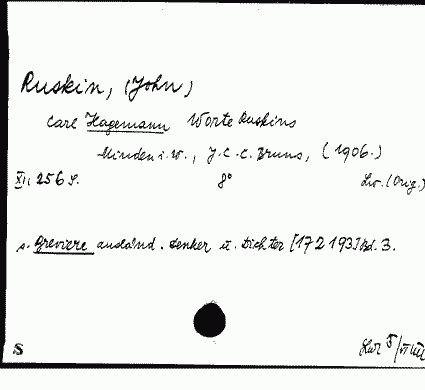 Ruskin, (John)
Carl Hagemann Worte Ruskins
Minden i. W., J. C. C. Bruns, (1906.)
XI, 256 S. 8° Lw. (Orig.)
s. Breviere ausländ. Denker u. Dichter [172 193] Bd. 3.
S